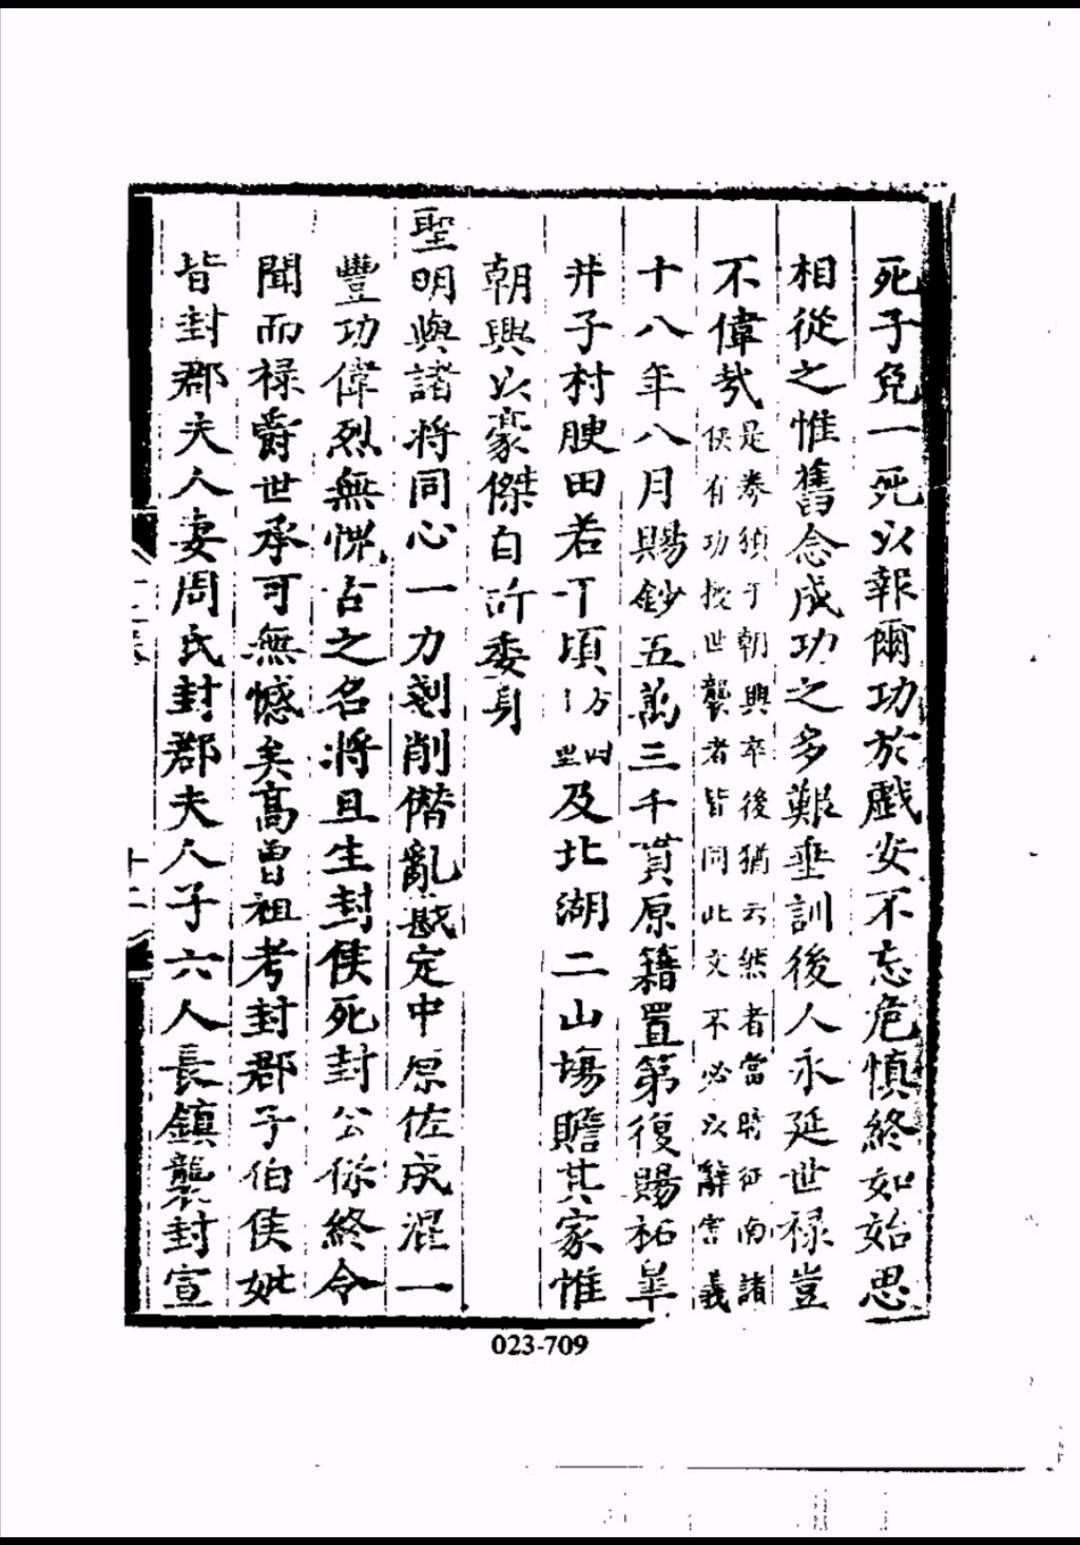 死子免一死以報爾功於戲安不忘危慎終如始思
相從之惟舊念成功之多艱垂訓後人永延世祿豈
不偉哉是券頒于朝興卒後猶云然者當時征南諸
侯有功授世襲者皆同此文不必以辭害義
十八年八月賜鈔五萬三千貫原籍置第復賜祐皋
井子村腴田若干頃及北湖二山場贍其家惟
朝興以豪傑自許委身
聖明與諸將同心一力剗削僭亂戡定中原佐成混一
豐功偉烈無愧古之名將且生封侯死封公始終令
聞而祿爵世承可無憾矣高曾祖考封郡子伯侯妣
皆封郡夫人妻周氏封郡夫人子六人長鎮襲封宣
十二
023-709